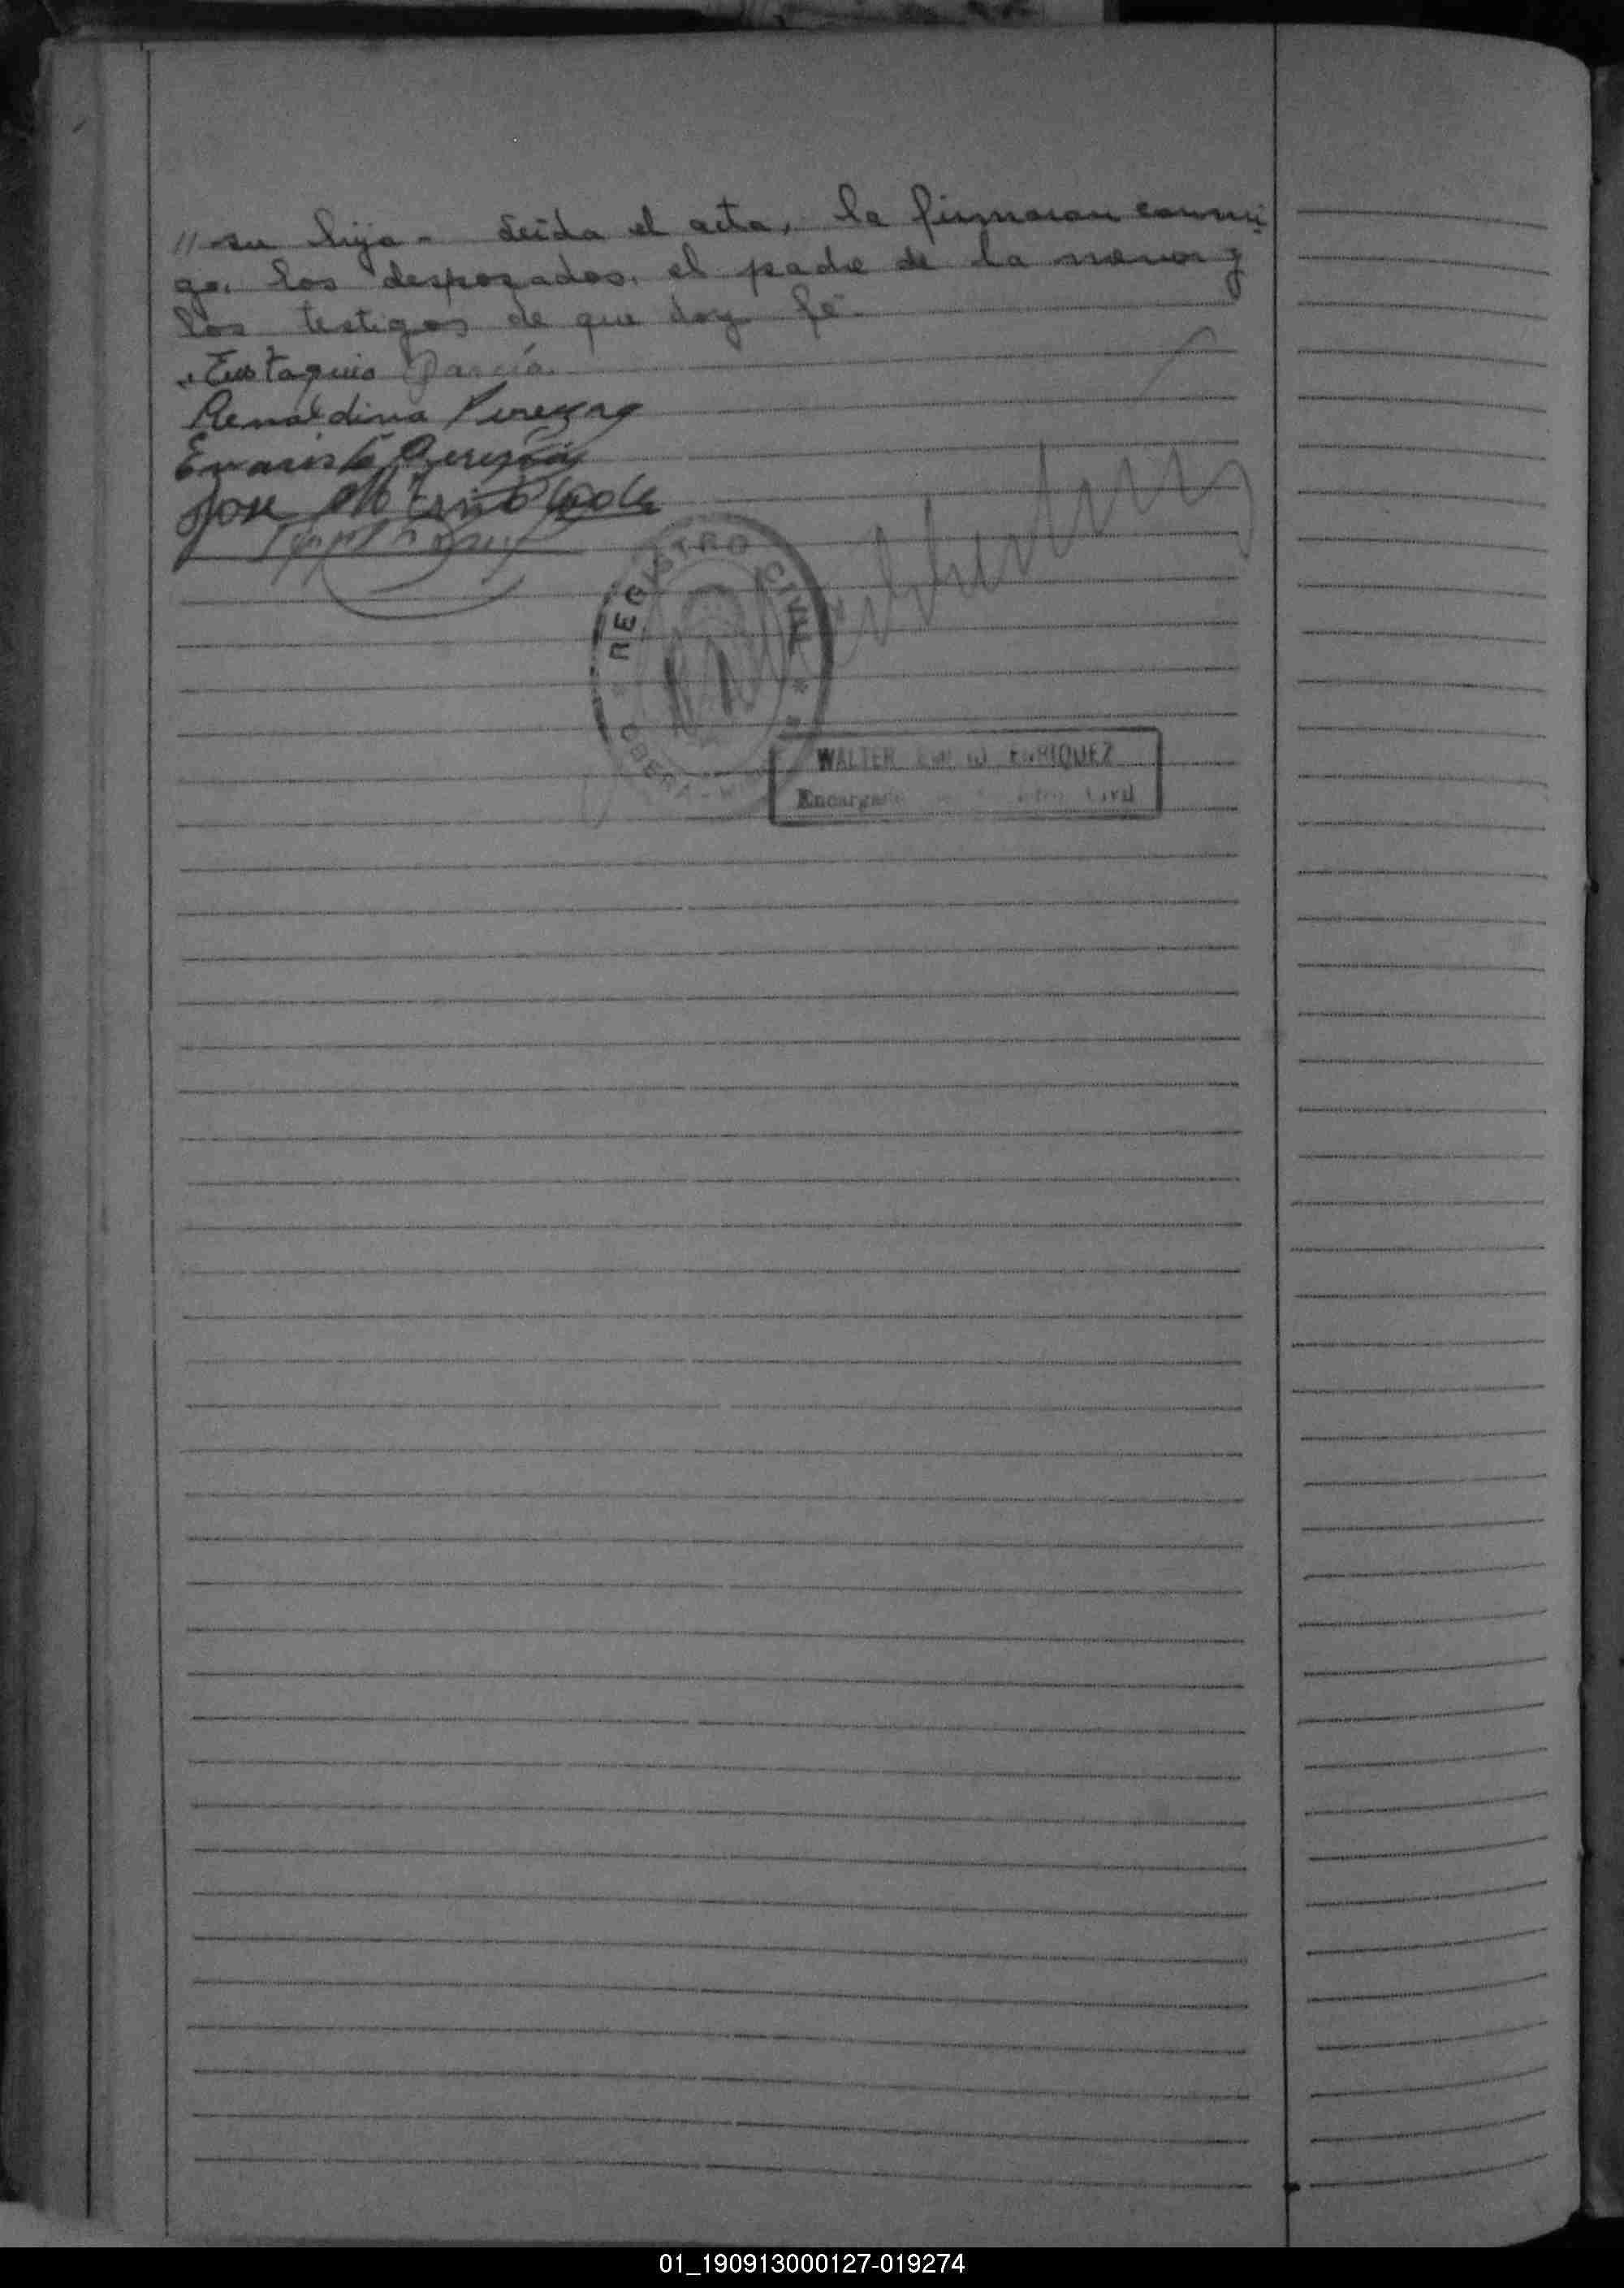 // su hija - Leida el acta, la firmaron conmi
go, los desposados, el padre de la menor y
los testigos de que doy fe-
Eustaquio Garcia
Renaldina Pereyra
Evaristo Pereyra
Jose
REGISTRO CIVIL
OBERA -
WALTER ENRIQUEZ
Encargado Civil
01_190913000127-019274